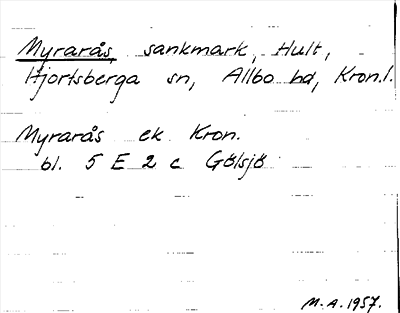 Myrarås, sankmark, Hult,
Hjortsberga sn, Allbo hd, Kron.l.
Myrarås ek Kron.
bl. 5 E 2 c Gölsjö
M.A. 1957.